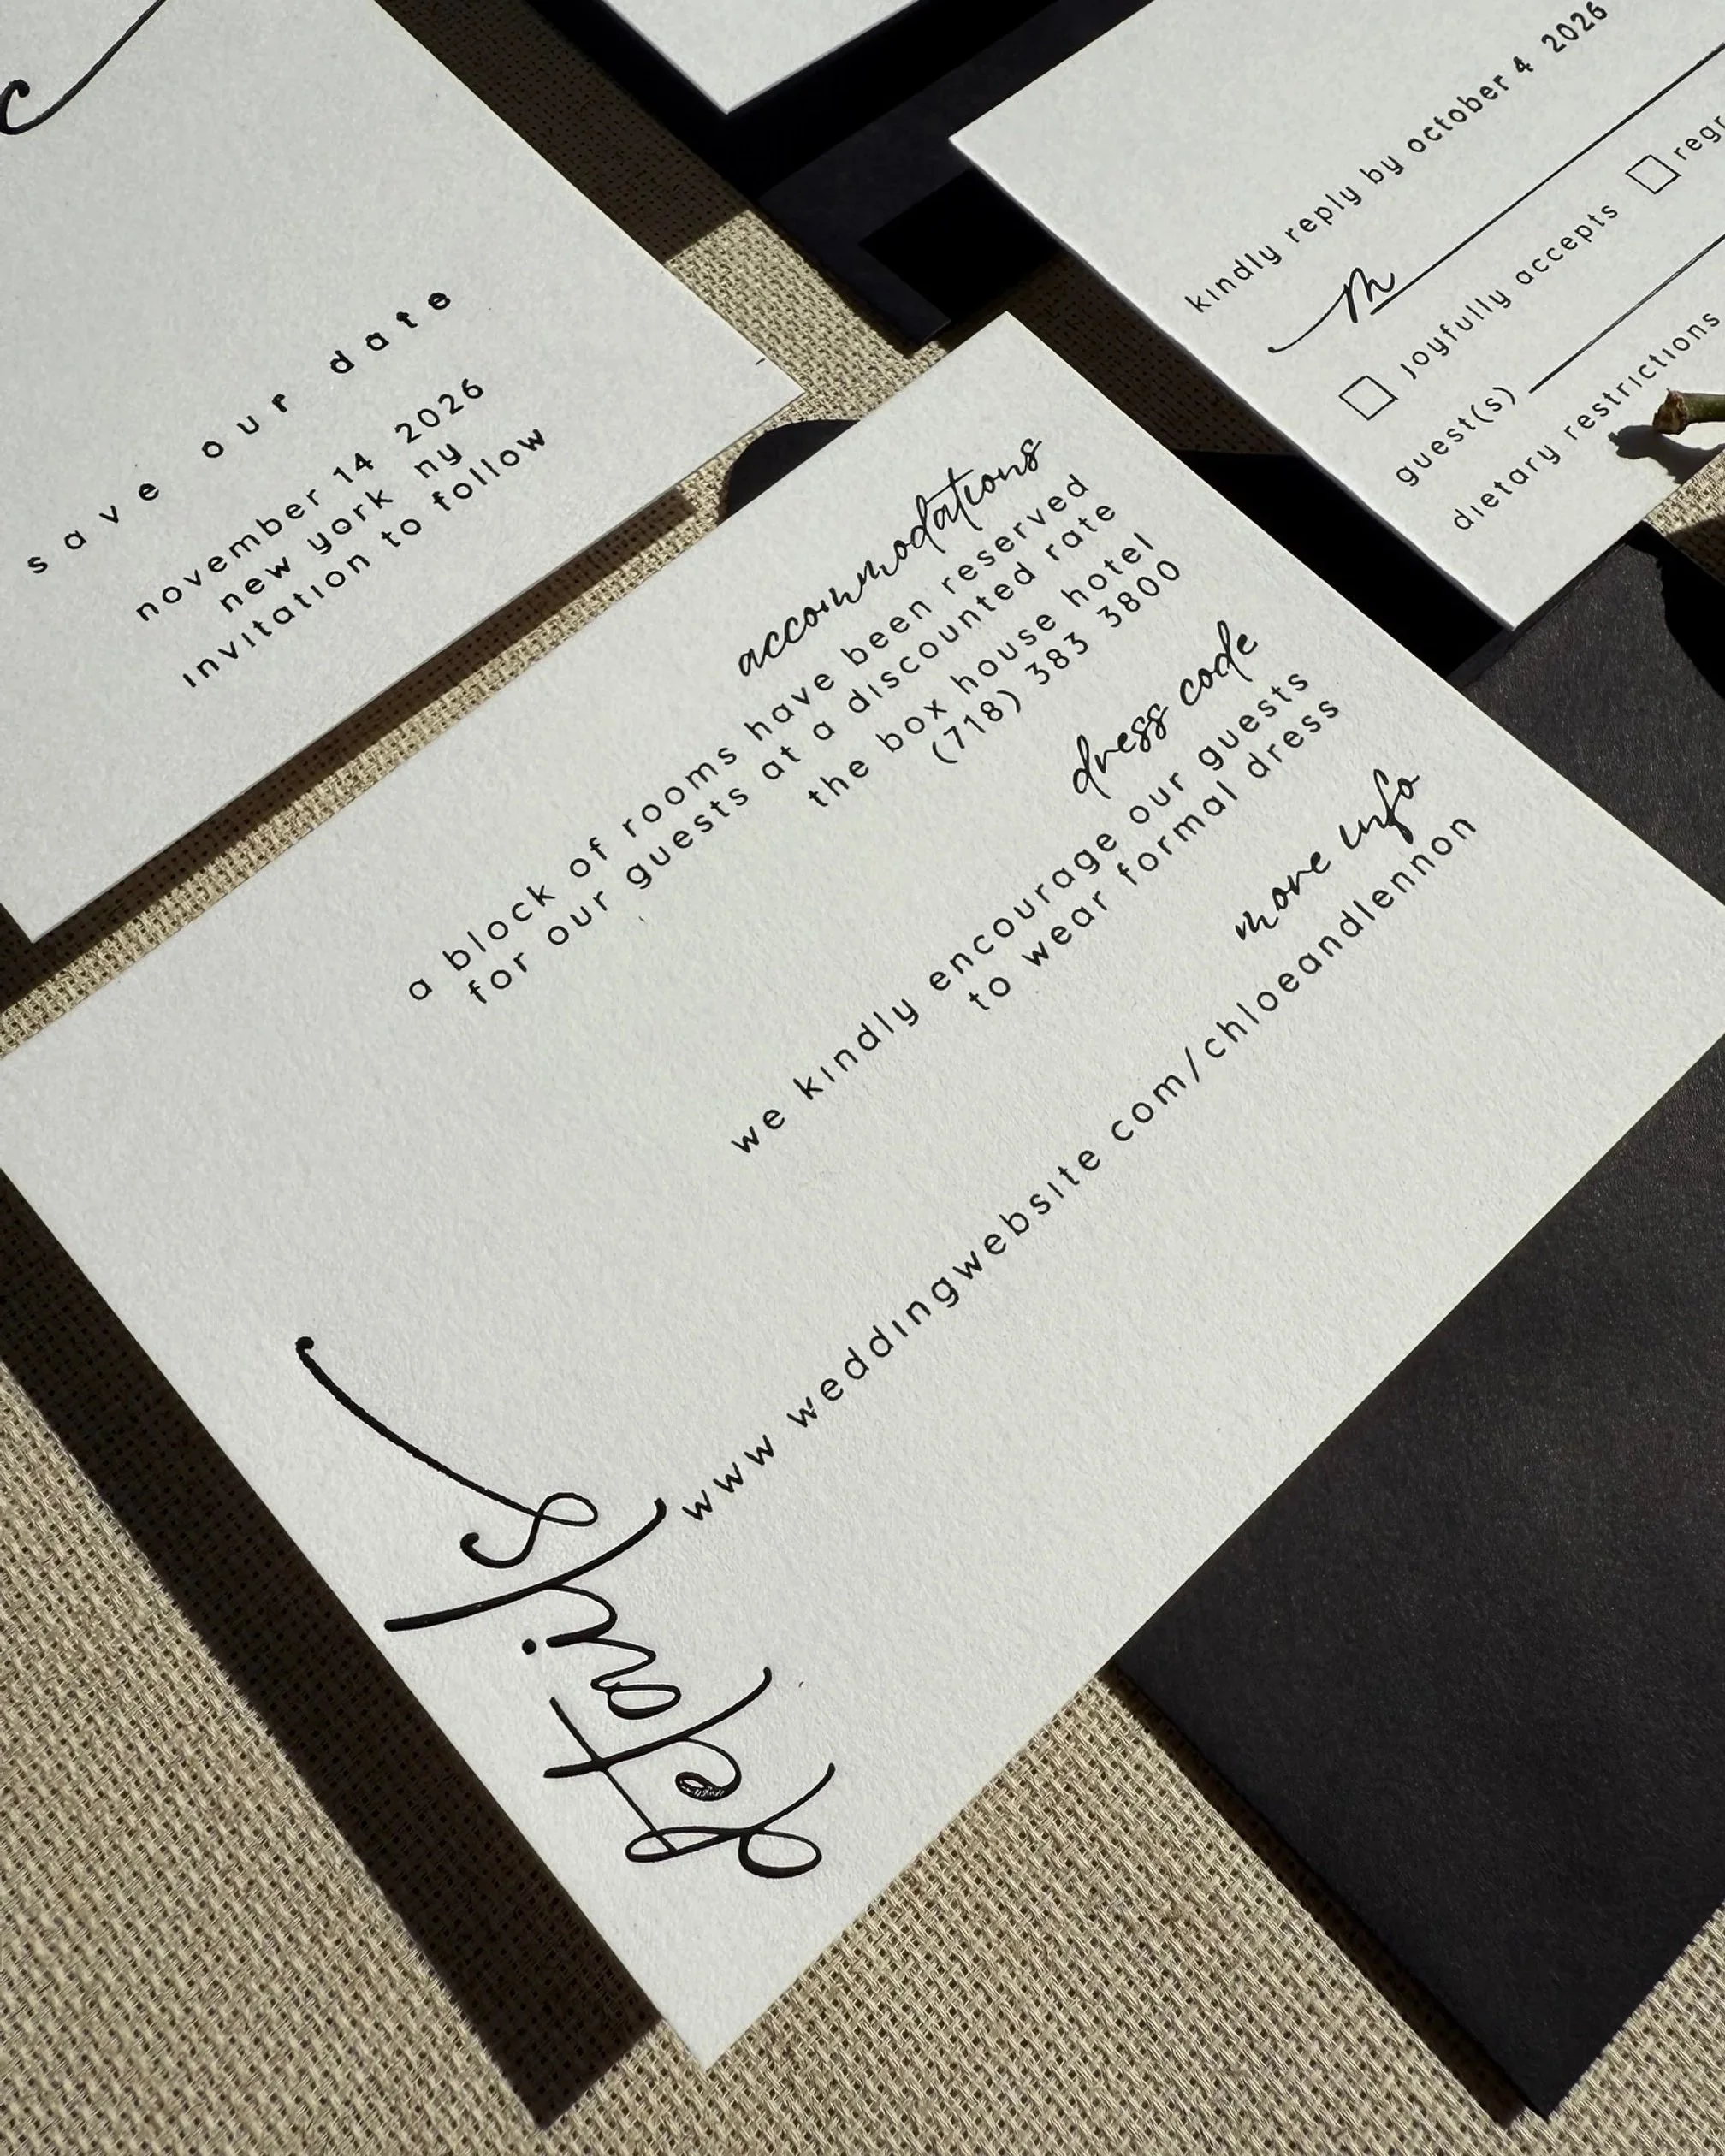 save our date
november 14 2026
new york ny
invitation to follow
kindly reply by october 4 2026
m
joyfully accepts
guest(s)
dietary restrictions
accommodations
a block of rooms have been reserved
for our guests at a discounted rate
the box house hotel
(718) 383 3800
dress code
we kindly encourage our guests
to wear formal dress
more info
www weddingwebsite com/chloeandlennon
details